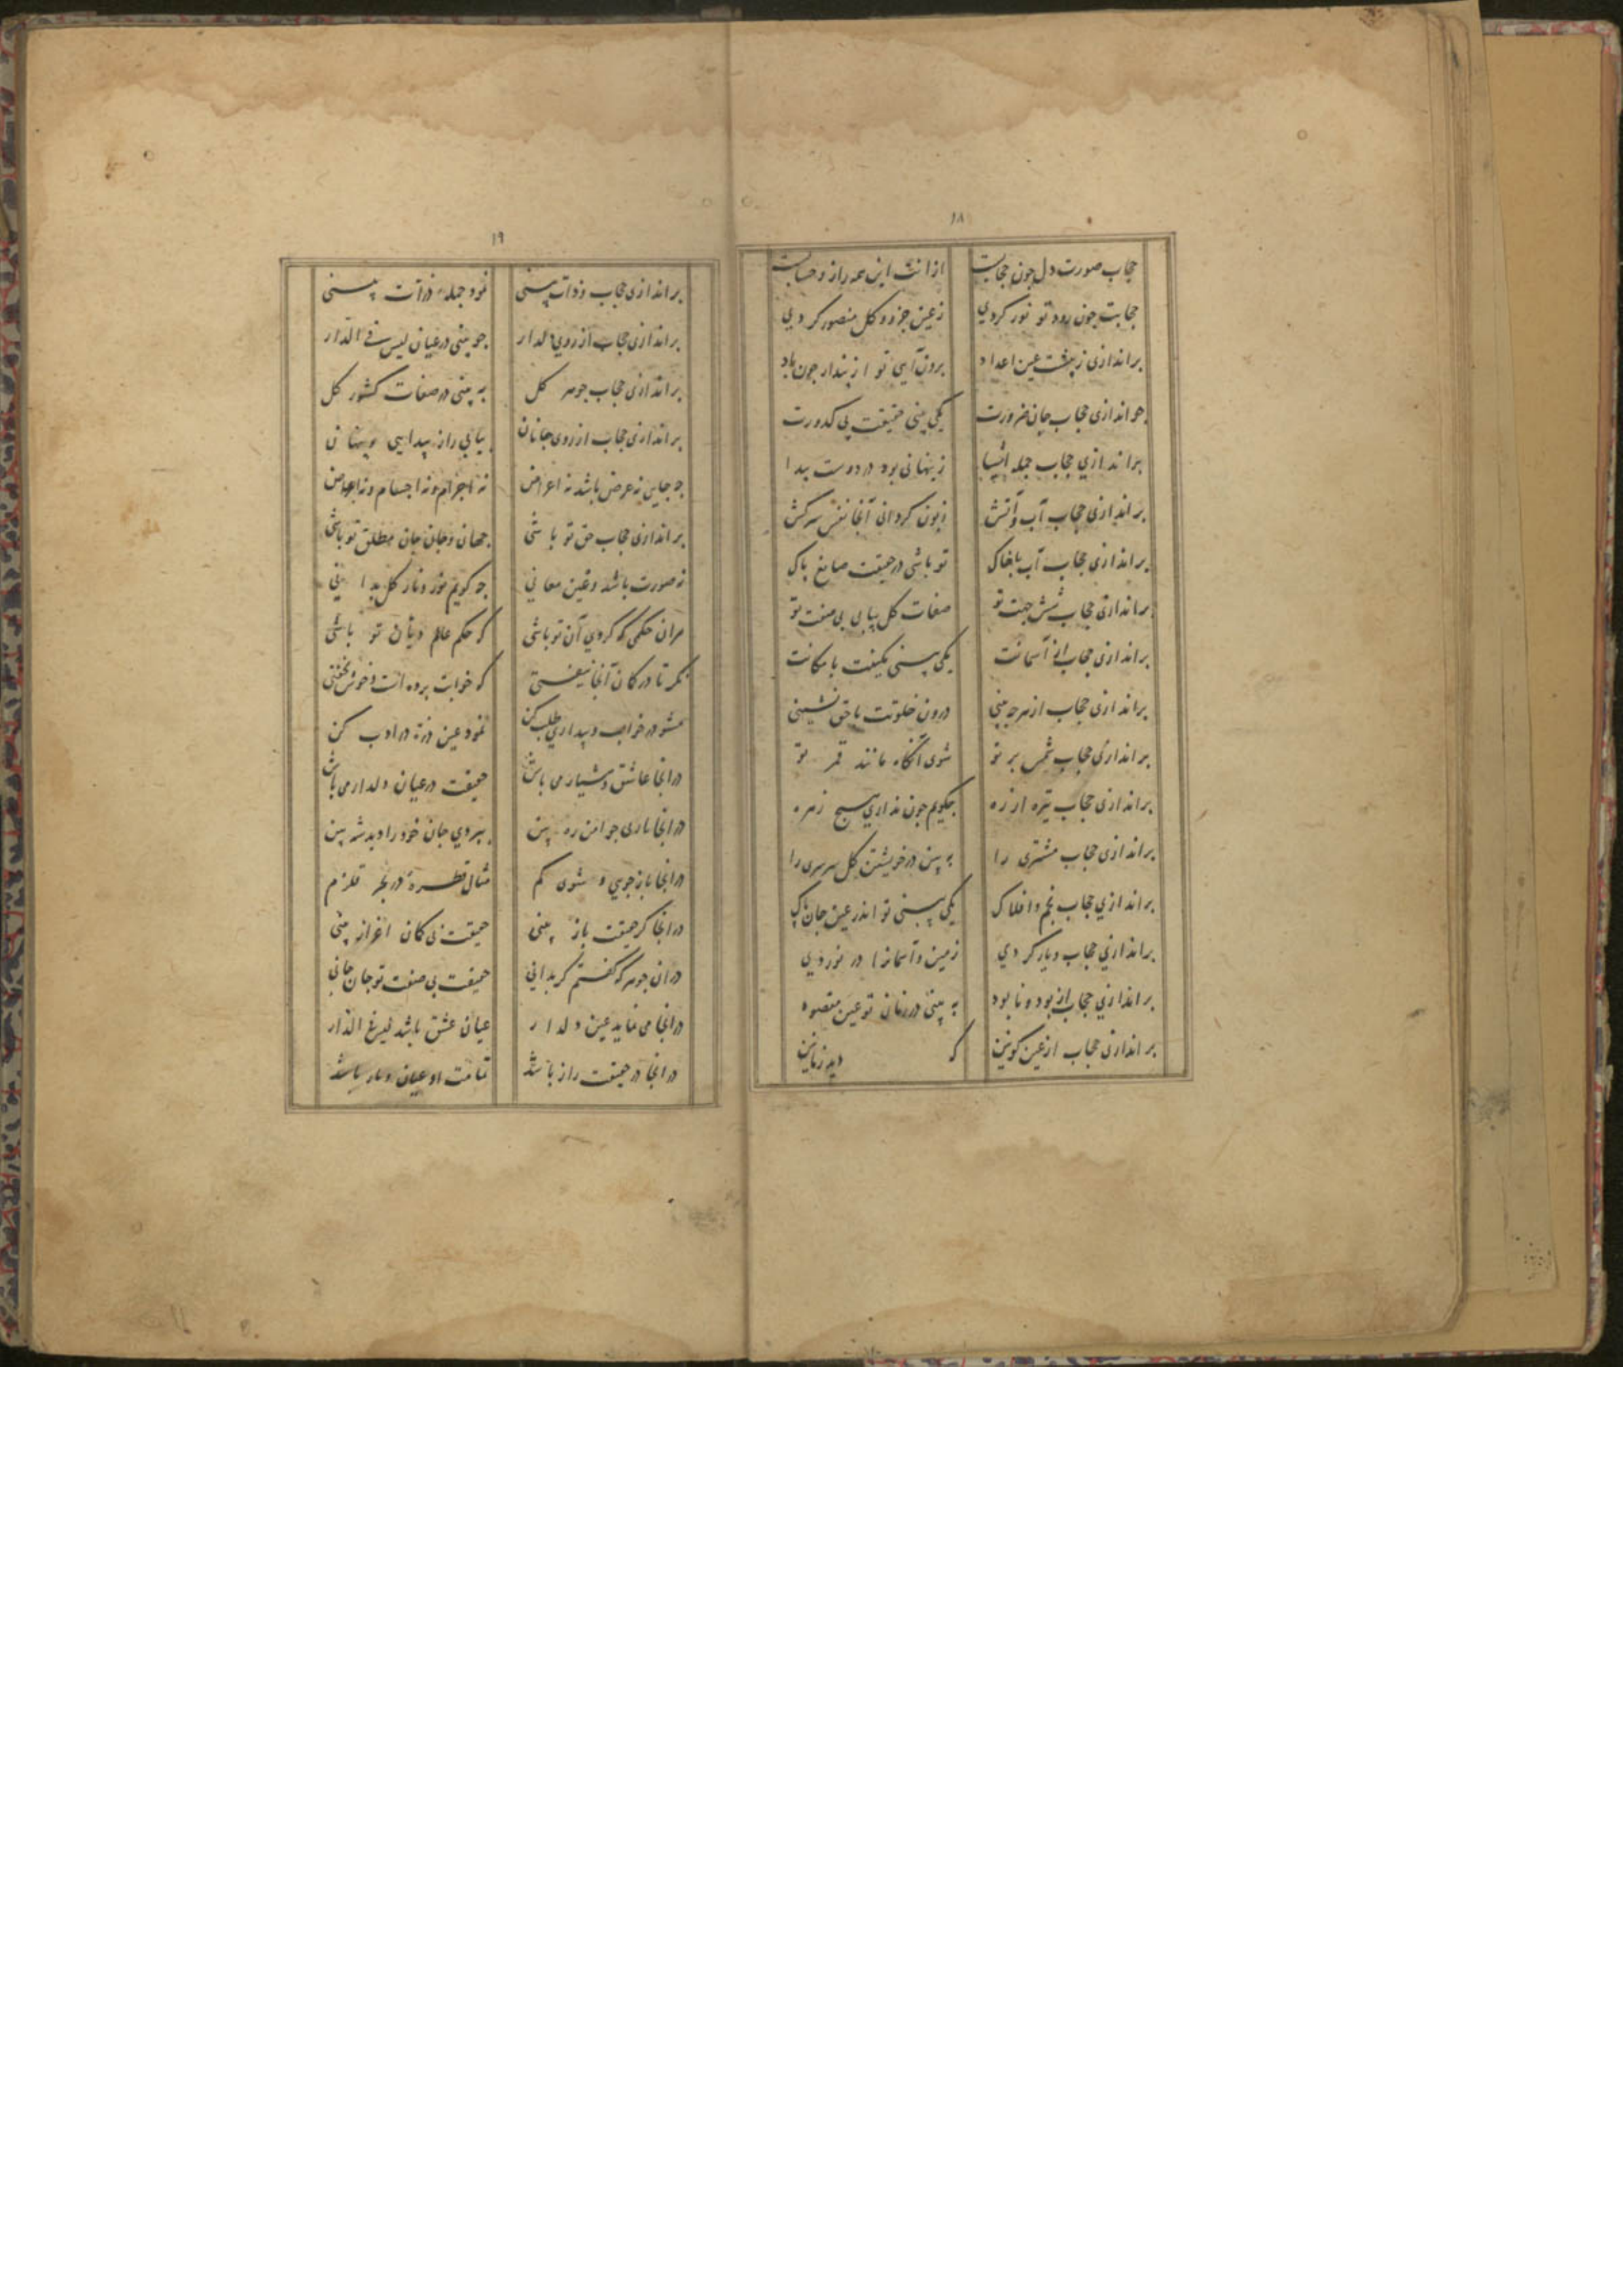 ۱۸
حجاب صورت دل چون حجابست ازانت این همه راز و حسابست
حجابت چون رود تو نور کردی ز عین جزو و کل منصور کردی
براندازی ز پیشت عین اعداد برون آیی تو از پندار چون باد
چو اندازی حجاب جان ضرورت یکی بینی حقیقت بی کدورت
براندازی حجاب جمله اشیا ز پنهانی بود در دوست پیدا
براندازی حجاب آب و آتش زبون کردانی آنجا نفس سرکش
براندازی حجاب آب با خاک تو باشی در حقیقت صانع پاک
براندازی حجاب شش جهت تو صفات کل بیابی بی صفت تو
براندازی حجاب آسمانت یکی بینی یکیت با مکانت
براندازی حجاب از هرچه بینی درون خلوتت با حق نشینی
براندازی حجاب شمس بر تو شوی آنگاه مانند قمر تو
براندازی حجاب تیره از زه چگویم چون نداری هیچ زهره
براندازی حجاب مشتری را به بین در خویشتن کل سرسری را
براندازی حجاب نجم و افلاک یکی بینی تو اندر عین جان پاک
براندازی حجاب و باز کردی زمین و آسمانها در نوردی
براندازی حجاب از بود و نابود به بینی در زمان تو عین مقصود
براندازی حجاب از عین کونین که دید زمانین
۱۹
براندازی حجاب و ذات بینی نمود جمله ذرات بینی
براندازی حجاب از روی دلدار چو بینی در عیان لیس فی الدار
براندازی حجاب جوهر کل به بینی در صفات کشور کل
براندازی حجاب از روی جانان بیابی راز پیدایی و پنهان
چه جایی نه عرض باشد نه اعراض نه اجرام و نه اجسام و نه اعراض
براندازی حجاب حق تو باشی جهان و جان جان مطلق تو باشی
نه صورت باشد و عین معانی چه کویم نور و نار کل بدانی
هران حکمی که کردی آن تو باشی که حکم عالم و دیان تو باشی
نکر تا در کان آنجا نیفتی که خوابت برده است و خوش بخفتی
مشو در خواب و بیداری طلب کن نمود عین ذره در ادب کن
در انجا عاشق و هشیار می باش حقیقت در عیان دلدار می باش
در انجا بازی جو امن ره بین بروی جان خود را دید شه بین
در انجا باز جویی و شوی کم مثال قطره در بحر قلزم
در انجا کر حقیقت باز بینی حقیقت بی کمان اعزاز بینی
دران جوهر که کفتم کر بدانی حقیقت بی صفت تو جان جانی
در انجا می نماید عین دلدار عیان عشق باشد لیس فی الدار
در انجا در حقیقت راز باشد تمامت او عیان و باز باشد